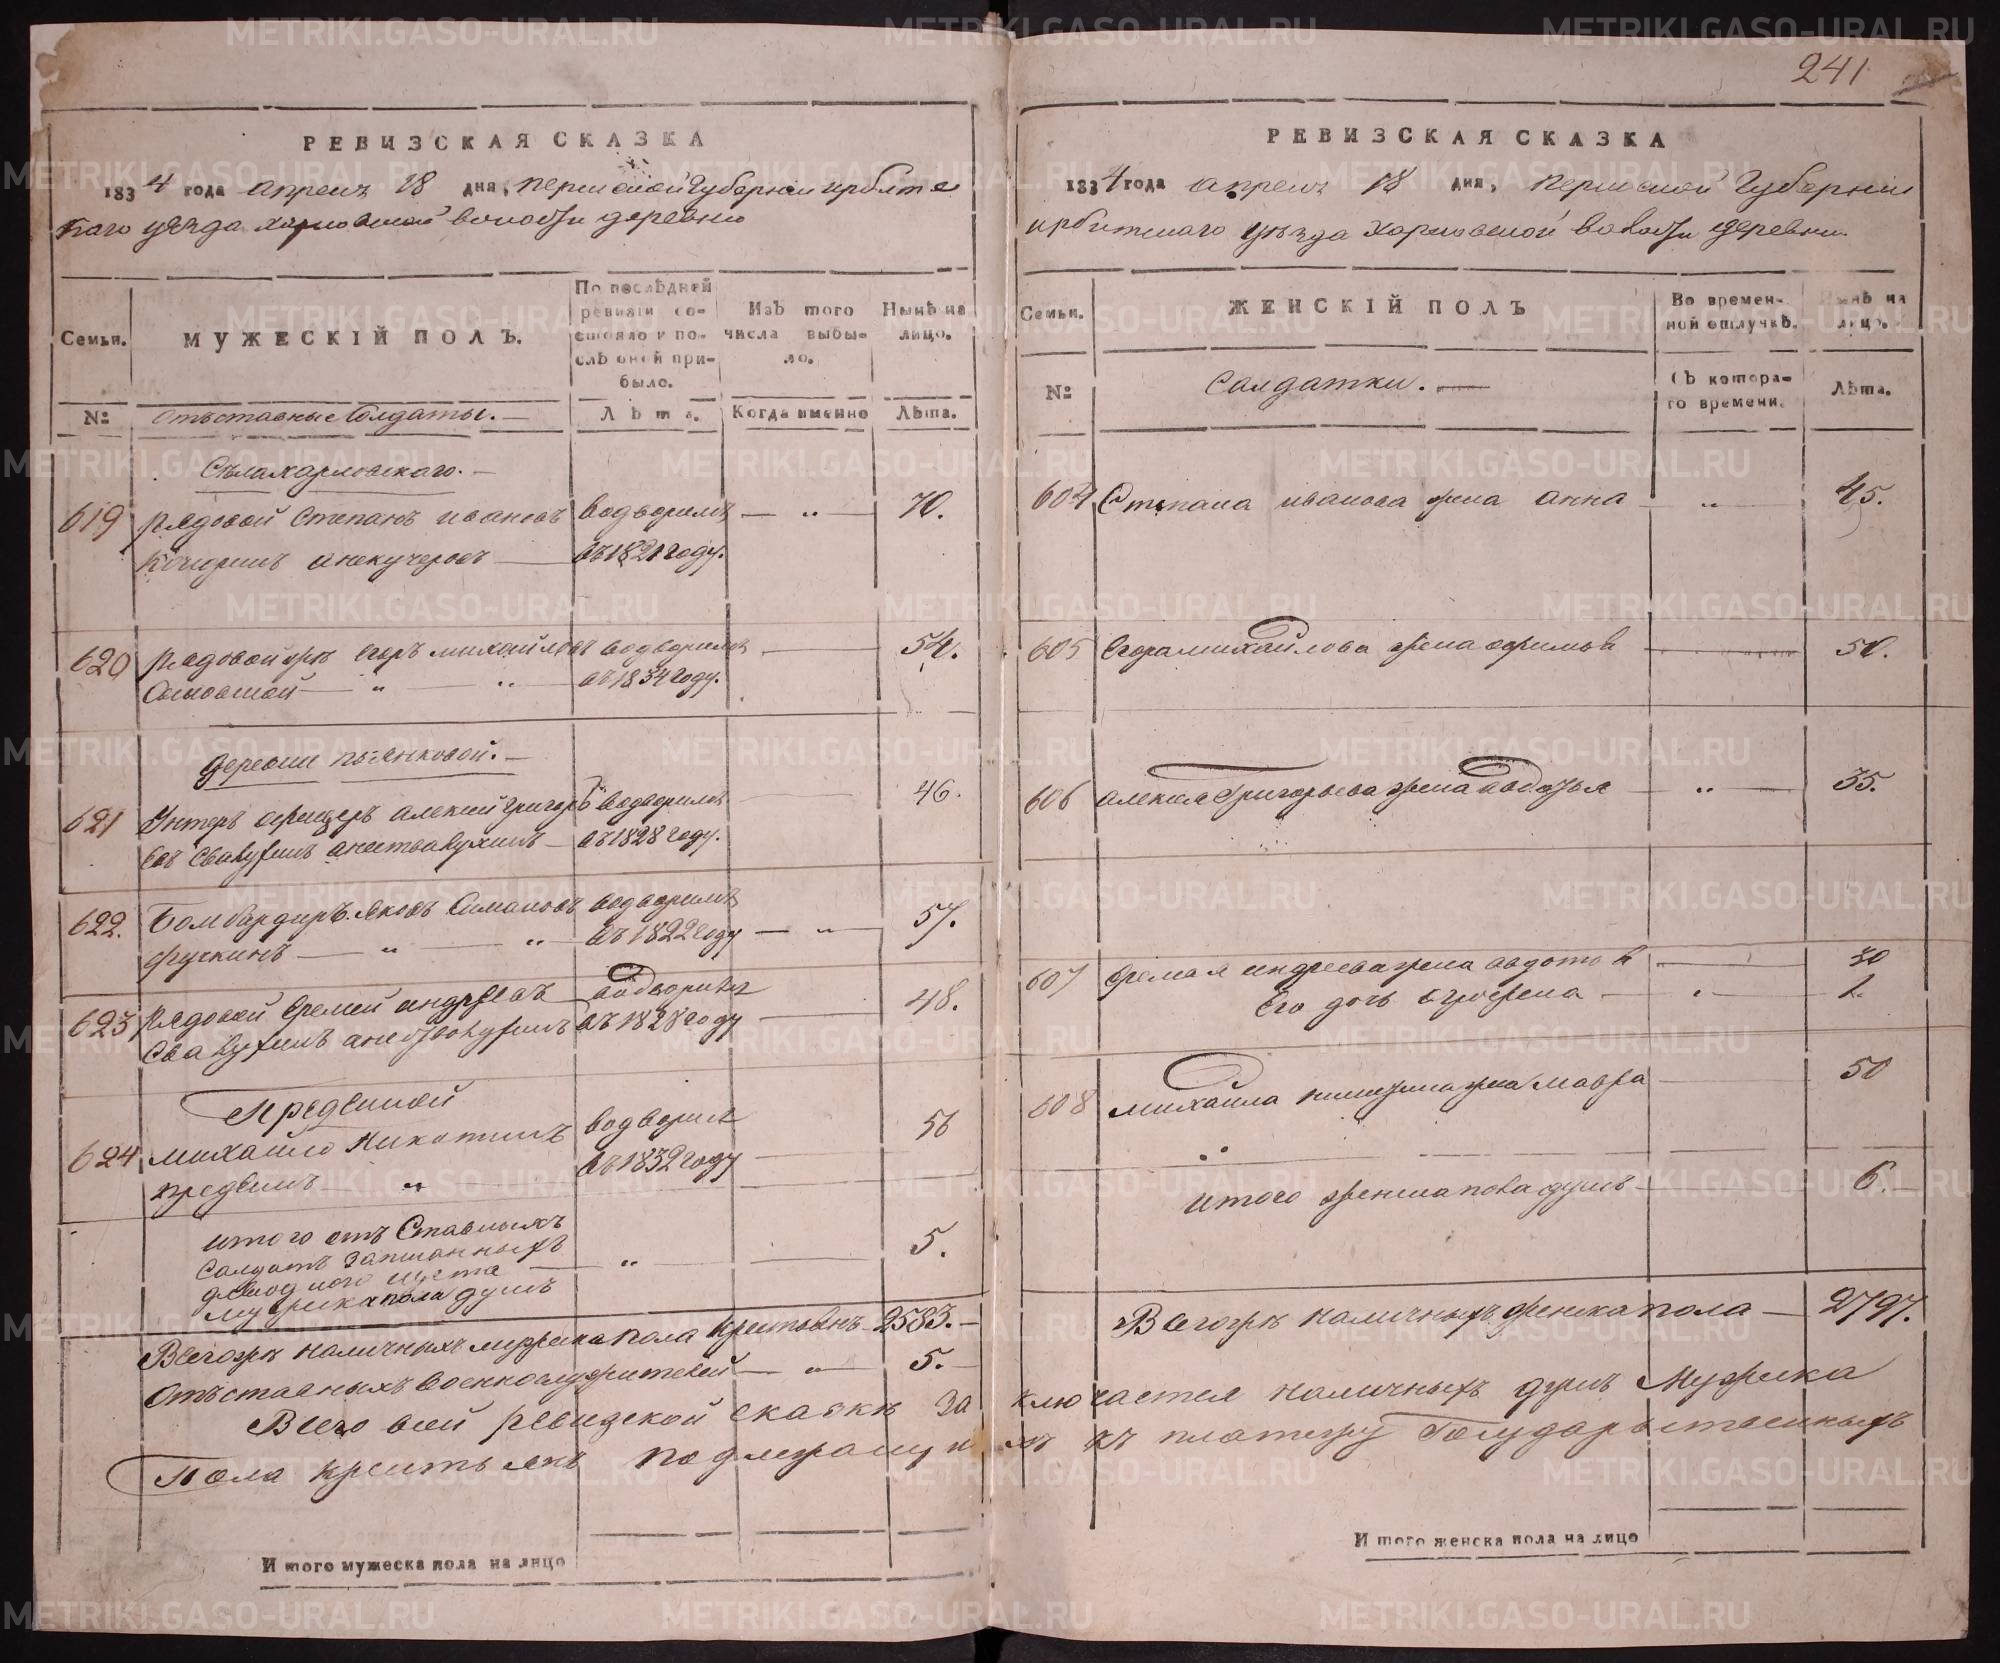 241
РЕВИЗСКАЯ СКАЗКА
1834 года апреля 18 дня, пермской Губернии ирбитс
каго уѣзда харловской волости деревни
Семьи.
МУЖЕСКІЙ ПОЛЪ.
По послѣдней ревизіи состояло и послѣ оной прибыло.
Изъ того числа выбыло.
Нынѣ на лицо.
№
Отъставные Солдаты.
Лѣта.
Когда именно
Лѣта.
Села харловскаго.
619 рядовой Степанъ ивановъ водворилъ 70.
въ 1821 году.
620 рядовой Егоръ михайловъ водворилъ 54.
въ 1834 году.
деревни пьянковой.
621 Унтеръ офицеръ алексей григорь водворилъ 46.
въ 1828 году.
622. Бомбардиръ яковъ Симановъ водворилъ 57.
въ 1822 году
623 рядовой Еремей андреевъ водворилъ 48.
въ 1828 году
624 михайло Никитинъ водворилъ 56
въ 1832 году
итого отъ Ставныхъ
Солдатъ записанныхъ
5.
мужеска пола душъ
Всего же наличныхъ мужеска пола крестьянъ 2583.
Отъставныхъ военнослужителей 5.
Всего всей ревиской сказке за
пола крестьянъ подлежащи
Итого мужеска пола на лицо
РЕВИЗСКАЯ СКАЗКА
1834 года апреля 18 дня, пермской Губернии
ирбитскаго уѣзда харловской волости деревни
Семьи.
ЖЕНСКІЙ ПОЛЪ
Во временной отлучкѣ.
Нынѣ на лицо.
№
Солдатки.
Съ котораго времени.
Лѣта.
604 Степана иванова жена анна 45.
605 Егора михайлова жена афимья 50.
606 алексея Григорьева жена 35.
607 Еремея андреева жена авдотья 30
Его дочь 1.
608 михайла никитина жена мавра 50
итого женска пола душъ 6.
Всего же наличныхъ женска пола 2797.
ключается наличныхъ душъ Мужеска
хъ къ платежу Государственныхъ
Итого женска пола на лицо